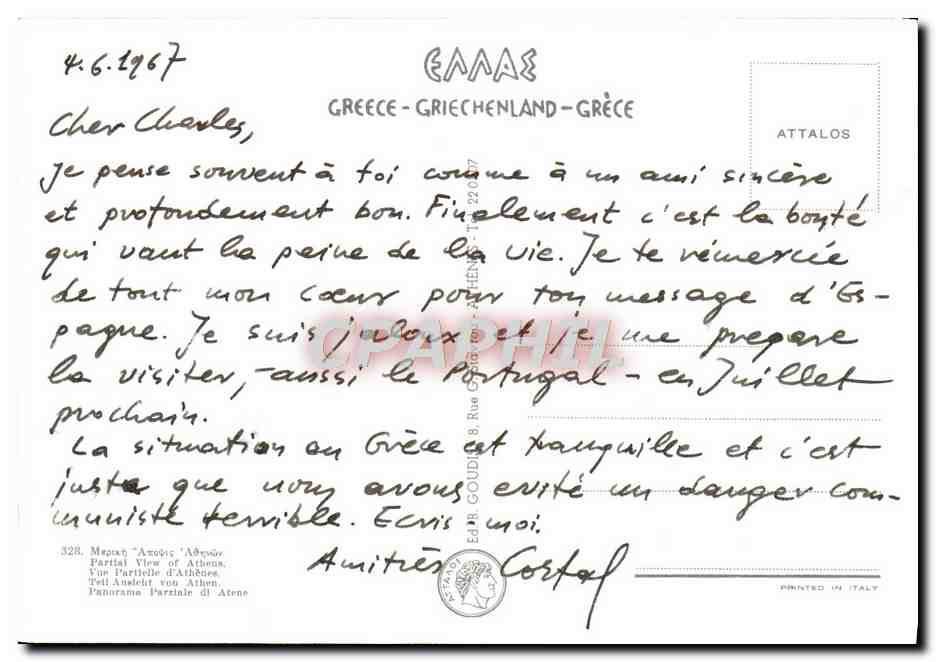 4.6.1967
ΕΛΛΑΣ
GREECE - GRIECHENLAND - GRÈCE
ATTALOS
Cher Charles,
Je pense souvent à toi comme à un ami sincère
et profondement bon. Finalement c'est la bonté
qui vaut la peine de la vie. Je te rémercie
de tout mon cœur pour ton message d'Es-
pagne. Je suis jaloux et je me prepare
la visiter, - aussi le Portugal - en Juillet
prochain.
La situation en Grèce est tranquille et c'est
juste que nous avons evité un danger com-
muniste terrible. Ecris-moi.
Amitiés
328. Μερική Ἄποψις Ἀθηνῶν
Partial View of Athens.
Vue Partielle d'Athènes.
Teil Ansicht von Athen.
Panorama Parziale di Atene
Ed. B. GOUDIS 8, Rue - ATHÈNES - Tel. 220
ΑΤΤΑΛΟΣ
PRINTED IN ITALY
CPAPHIL